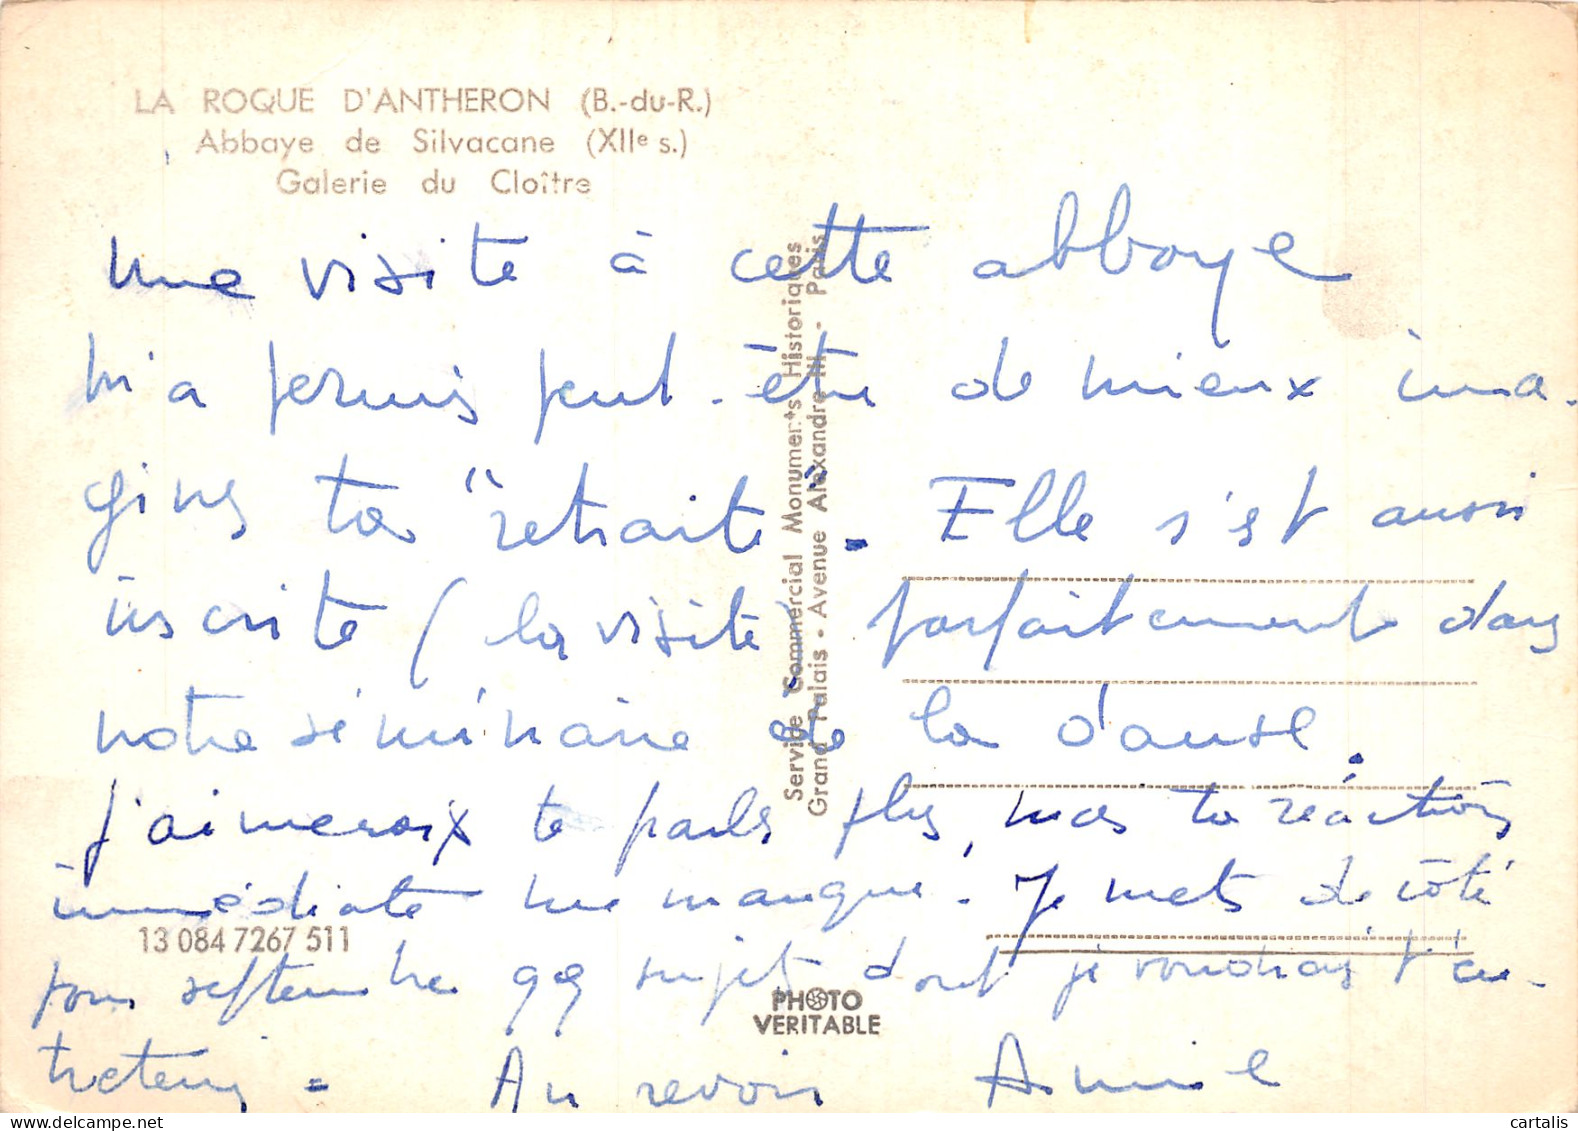 LA ROQUE D'ANTHERON (B.-du-R.)
Abbaye de Silvacane (XIIe s.)
Galerie du Cloître
une visite à cette abbaye
m'a permis peut-être de mieux ima-
giner ta "retraite". Elle s'est aussi
inscrite (la visite) parfaitement dans
notre séminaire de la danse.
J'aimerais te parler plus, mais ta réaction
immédiate me manque. Je mets de côté
pour septembre qq sujets dont je voudrais t'en-
tretenir. Au revoir Annie
13 084 7267 511
Service Commercial Monuments Historiques
Grand Palais - Avenue Alexandre III - Paris
PHOTO
VERITABLE
www.cartalis.com
cartalis